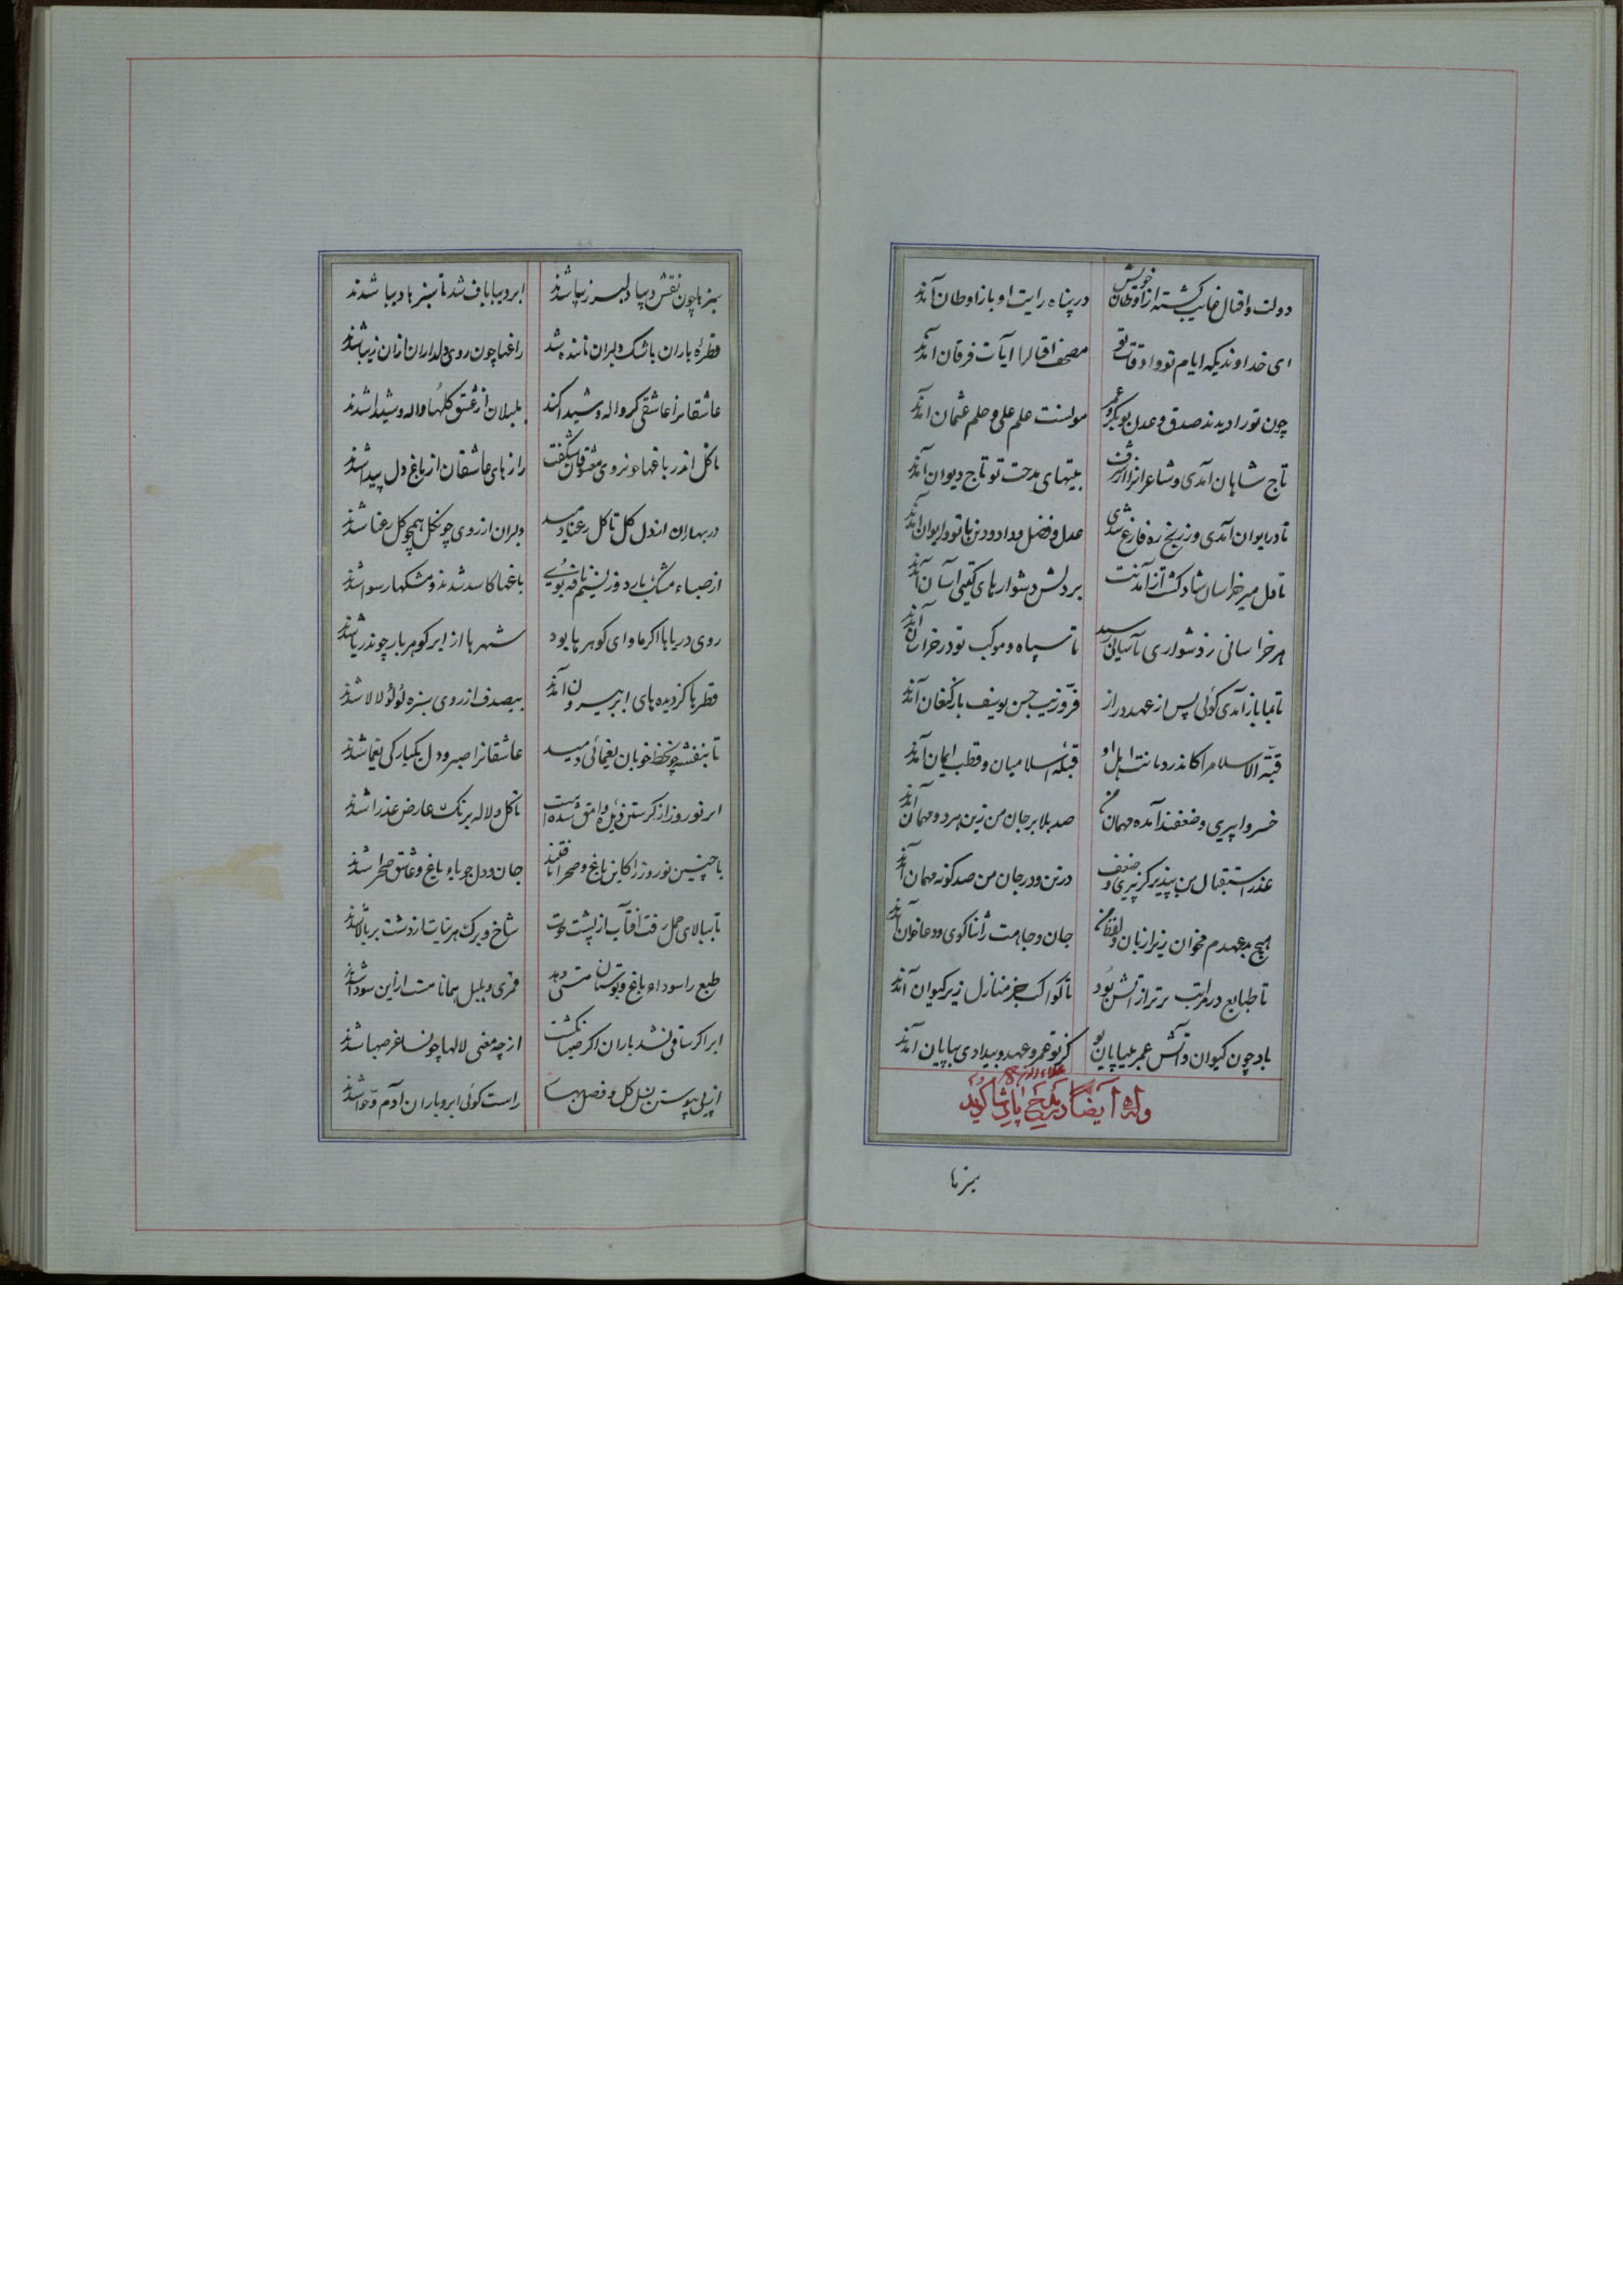 دولت و اقبال غایب گشته از اوطان خویش در پناه رایت او باز اوطان آمدند
ای خداوندیکه ایام تو و اوقات تو مصحف اقبالرا آیات فرقان آمدند
چون تو را دیدند صدق و عدل بوبکر و عمر مونست علم علی و حلم عثمان آمدند
تاج شاهان آمدی و شاعرانرا از شرف بیتهای مدحت تو تاج دیوان آمدند
تا در ایوان آمدی وز رنج ره فارغ شدی عدل و فضل و داد و دین با تو در ایوان آمدند
تا دل میر خراسان شاد گشت از آمدنت بر دلش دشواریهای گیتی آسان آمدند
هر خراسانی ز دشواری بآسانی رسید تا سپاه و موکب تو در خراسان آمدند
تا بما باز آمدی گوئی پس از عهد دراز فرّ و زیب حسن یوسف باز کنعان آمدند
قبّة الاسلام را کاندر دیانت اهل او قبلهٔ اسلامیان و قطب ایمان آمدند
خسروا پیری و ضعفند آمده مهمان من صد بلا بر جان من زین هر دو مهمان آمدند
عذر استقبال من بپذیر کز پیری و ضعف در تن و در جان من صد گونه مهمان آمدند
هیچ بدعهدم مخوان زیرا زبان و لفظ من جان و جاهت را ثناگوی و دعاخوان آمدند
تا طبایع در مراتب برتر از آتش بود تا کواکب جز منازل زیر کیوان آمدند
باد چون کیوان و آتش عمر بی پایان تو کز تو عمر و عهد و بیدادی بپایان آمدند
وله ایضا در مدح پادشاه گوید
سبزها
سبزها چون نقش دیبا دلبر زیبا شدند ابر دیباباف شد تا سبزها دیبا شدند
قطرهٔ باران باشک دلبران ماننده شد راغها چون روی دلداران از آن زیبا شدند
عاشقانرا عاشقی گر واله و شیدا کند بلبلان از عشق گلها واله و شیدا شدند
تا گل اندر باغها چون روی معشوقان شگفت رازهای عاشقان از باغ دل پیدا شدند
در بهاران از دل گل تا گل رعنا دمید دلبران از روی چون گل همچو گل رعنا شدند
از صباء مشگ‌بای وز نسیم نافه بوی باغها کاسد شدند و مشکها رسوا شدند
روی دریاها اگر ماوای گوهرها بود شهرها از ابر گوهربار چون دریا شدند
قطرها کز دیده‌های ابر بیرون آمدند بیصدف از روی سبزه لؤلؤ لالا شدند
تا بنفشه چون خط خوبان یغمائی دمید عاشقانرا صبر و دل یکبارگی یغما شدند
ابر نوروز از گرستن دیدهٔ وامق شده است تا گل و لاله برنگ عارض عذرا شدند
با چنین نوروز کاین باغ و صحرا یافتند جان و دل جویای باغ و عاشق صحرا شدند
تا ببالای حمل رفت آفتاب از پشت حوت شاخ و برگ هر نبات از دشت بر بالا شدند
طبع را سودای باغ و بوستان مستی دهد قمری و بلبل همانا مست از این سودا شدند
ابر اگر ساقی نشد باران اگر صهبا نگشت از چه معنی لالها چون ساغر صهبا شدند
از پی پیوستن نسل گل و فصل بهار راست گوئی ابر و باران آدم و حوا شدند